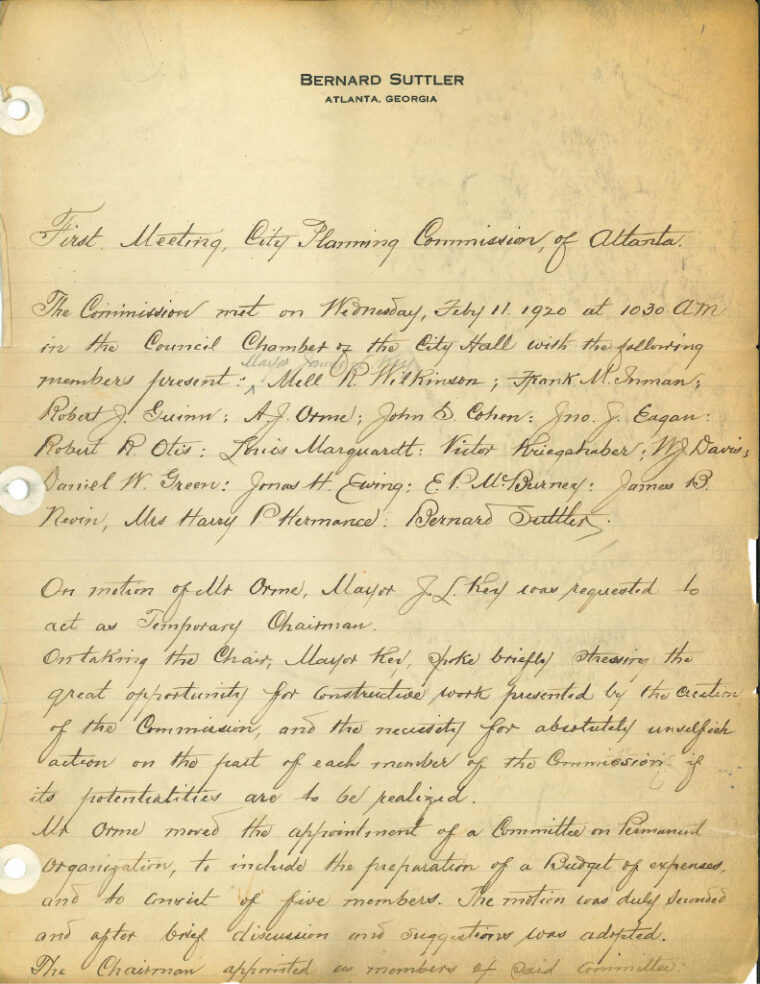 BERNARD SUTTLER
ATLANTA, GEORGIA
First Meeting, City Planning Commission, of Atlanta.
The Commission met on Wednesday, Feby 11. 1920 at 1030 AM
in the Council Chamber of the City Hall with the following
Mayor James L Key
members present: ^ Mell R Wilkinson; Frank M. Inman;
Robert J. Guinn; A.J. Orme; John S Cohen: Jno. J. Eagan:
Robert R. Otis: Louis Marquardt: Victor Kriegshaber; W.J. Davis;
Daniel W. Green: Jonas H. Ewing: E. P. McBurney: James B.
Nevin, Mrs Harry P Hermance: Bernard Suttler.
On motion of Mr Orme, Mayor J. L. Key was requested to
act as Temporary Chairman.
On taking the Chair, Mayor Key, spoke briefly stressing the
great opportunity for constructive work presented by the creation
of the Commission, and the necessity for absolutely unselfish
action on the part of each member of the Commission if
its potentialities are to be realized.
Mr Orme moved the appointment of a Committee on Permanent
Organization, to include the preparation of a Budget of expenses,
and to consist of five members. The motion was duly seconded
and after brief discussion and suggestions was adopted.
The Chairman appointed as members of said committee: